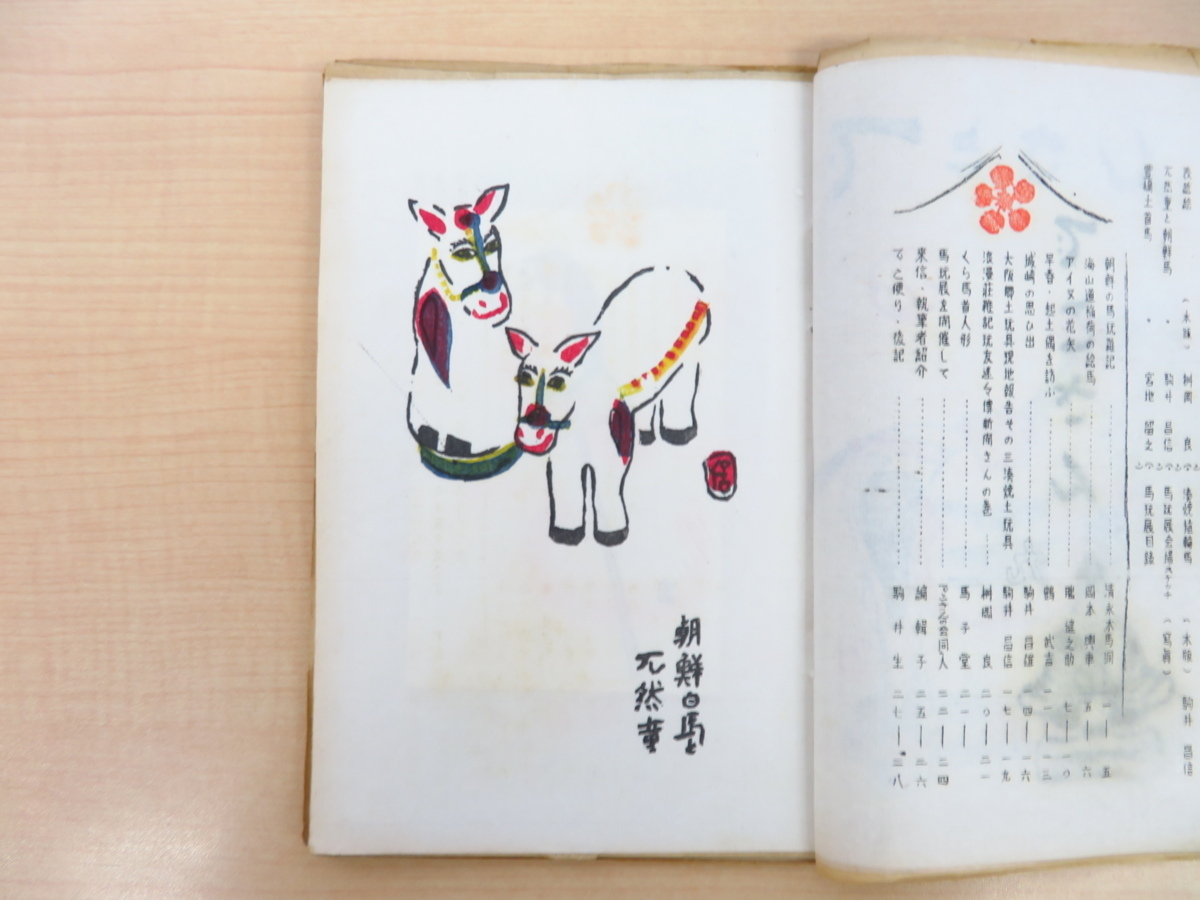 表紙絵
（木版）
桝岡 良
天然童と朝鮮馬
駒井 昌信
豊橋土首馬
宮地 留之
馬玩展会場スケッチ（寫眞）
馬玩展目録
朝鮮の馬玩箱記 清永木馬洞 一—五
海山道稲荷の絵馬 岡本 五—六
アイヌの花矢 七—一〇
早春・起土偶を訪ふ 鶴 武吉 一一—一三
城崎の思ひ出 駒井 昌雄 一四—一六
大阪郷土玩具現地報告その三湊焼土玩具 駒井 昌信 一七—一九
浪漫荘雑記玩友達々傳新聞さんの巻 桝岡 良 二〇—二一
くら馬首人形 馬子堂 二一—
馬玩展を開催して 会同人 二三—二四
来信・執筆者紹介 編輯子 二五—二六
でこ便り・後記 駒井生 二七—二八
朝鮮白馬と
天然童